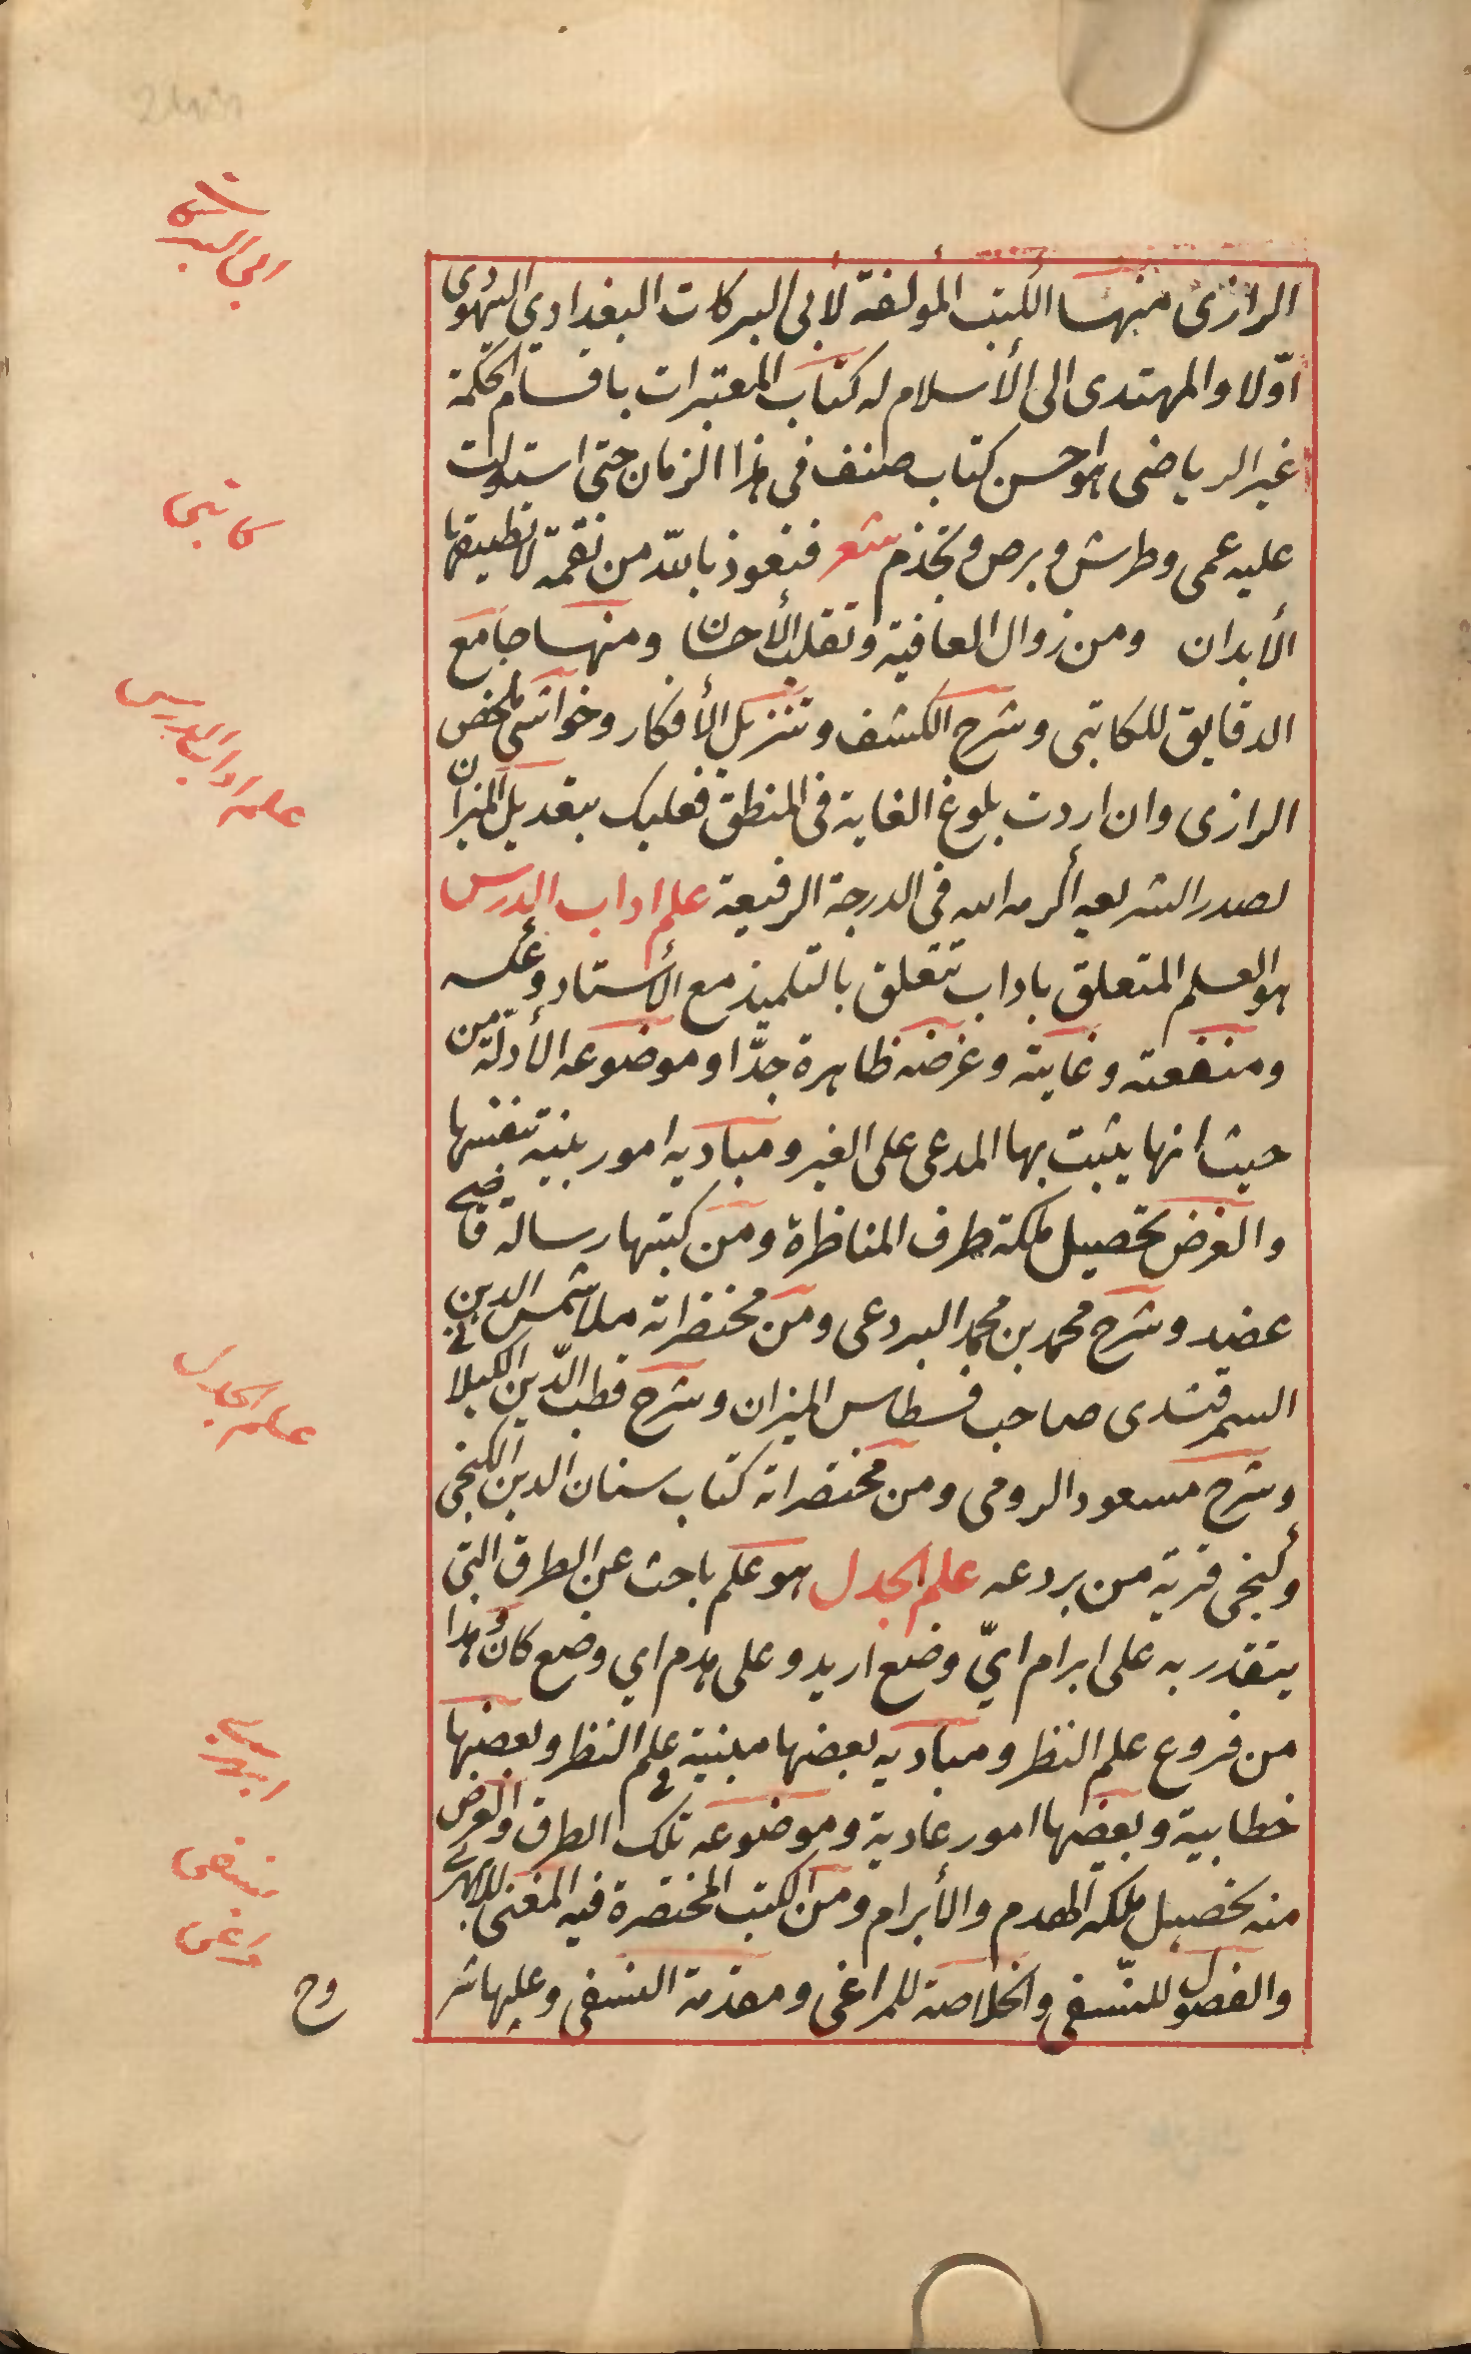 الرازى منها الكتب المؤلفة لأبى البركات البغدادي اليهودى
اوّلا والمهتدى الى الأسلام له كتاب المعتبرات باقسام الحكمة
غير الرياضى هو احسن كتاب صنف فى هذا الزمان حتى استولت
عليه عمى وطرش وبرص وتجذم شعر فنعوذ بالله من نقمة لا تطيقها
الأبدان ومن زوال العافية وتقلب الأحسان ومنها جامع
الدقايق للكاتبى وشرح الكشف وتنزيل الأفكار وحواشى ملخص
الرازى وان اردت بلوغ الغاية فى المنطق فعليك بتعديل الميزان
لصدر الشريعه أكرمه الله فى الدرجة الرفيعة علم اداب الدرس
هو العلم المتعلق باداب تتعلق بالتلميذ مع الأستاد وعكسه
ومنفعته وغايته وغرضه ظاهرة جدّا وموضوعه الأدلّة من
حيث انها يثبت بها المدعى على الغير ومباديه امور بينه بنفسها
والغرض تحصيل ملكة طرف المناظرة ومن كتبها رسالة قاضى
عضد وشرح محمد بن محمد البردعى ومن مختصراته ملا شمس الدين
السمرقندى صاحب قسطاس الميزان وشرح قطب الدّين الكيلانى
وشرح مسعود الرومى ومن مختصراته كتاب سنان الدين الكنجى
وكنجى قرية من بردعه علم الجدل هو علم باحث عن الطرق التى
يتقدر به على ابرام ايّ وضع اريد وعلى هدم اي وضع كان وهذا
من فروع علم النظر ومباديه بعضها مبنية فى علم النظر وبعضها
خطابية وبعضها امور عادية وموضوعه تلك الطرق والغرض
منه تحصيل ملكة الهدم والأبرام ومن الكتب المختصرة فيه المغنى للابهرى
والفصول للنّسفى والخلاصة للمراغى ومقدمة النسفى وعليها شر
وح
ابى البركات
كاتبى
علم اداب الدرس
علم الجدل
ابهرى
نسفى
مراغى